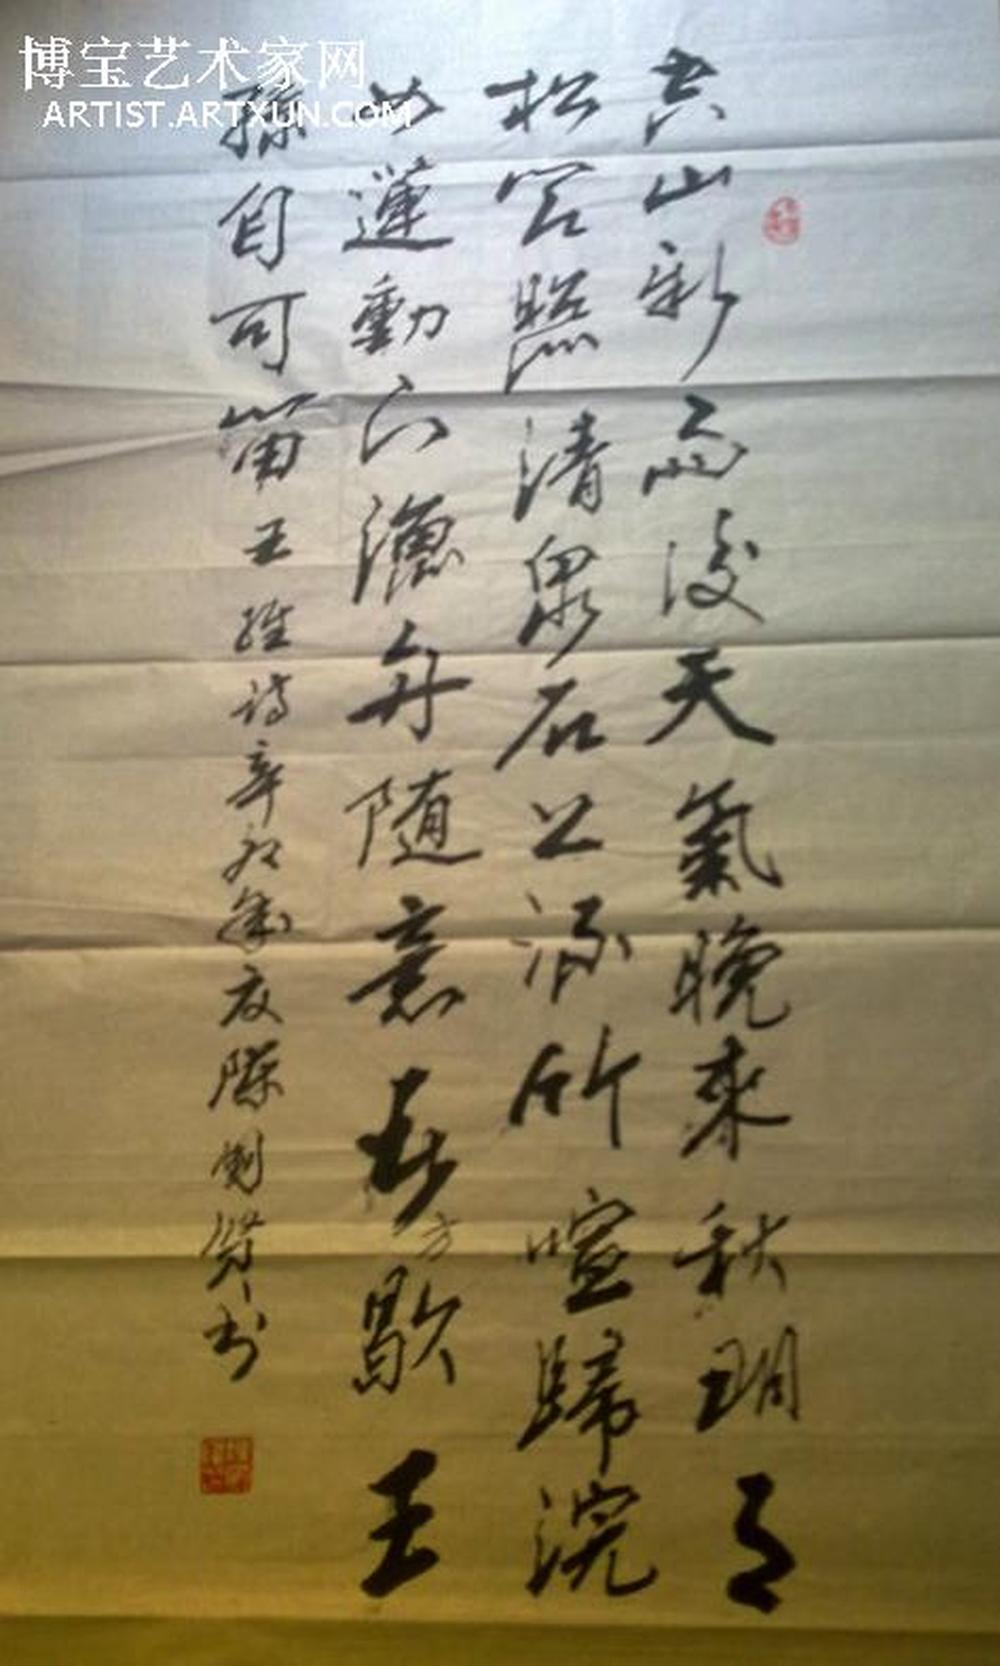 博宝艺术家网
ARTIST.ARTXUN.COM
空山新雨後天氣晚来秋明月
松间照清泉石上流竹喧歸浣
女蓮動下漁舟随意春方歇王
孫自可留王維诗辛卯年夏陈刚贤书